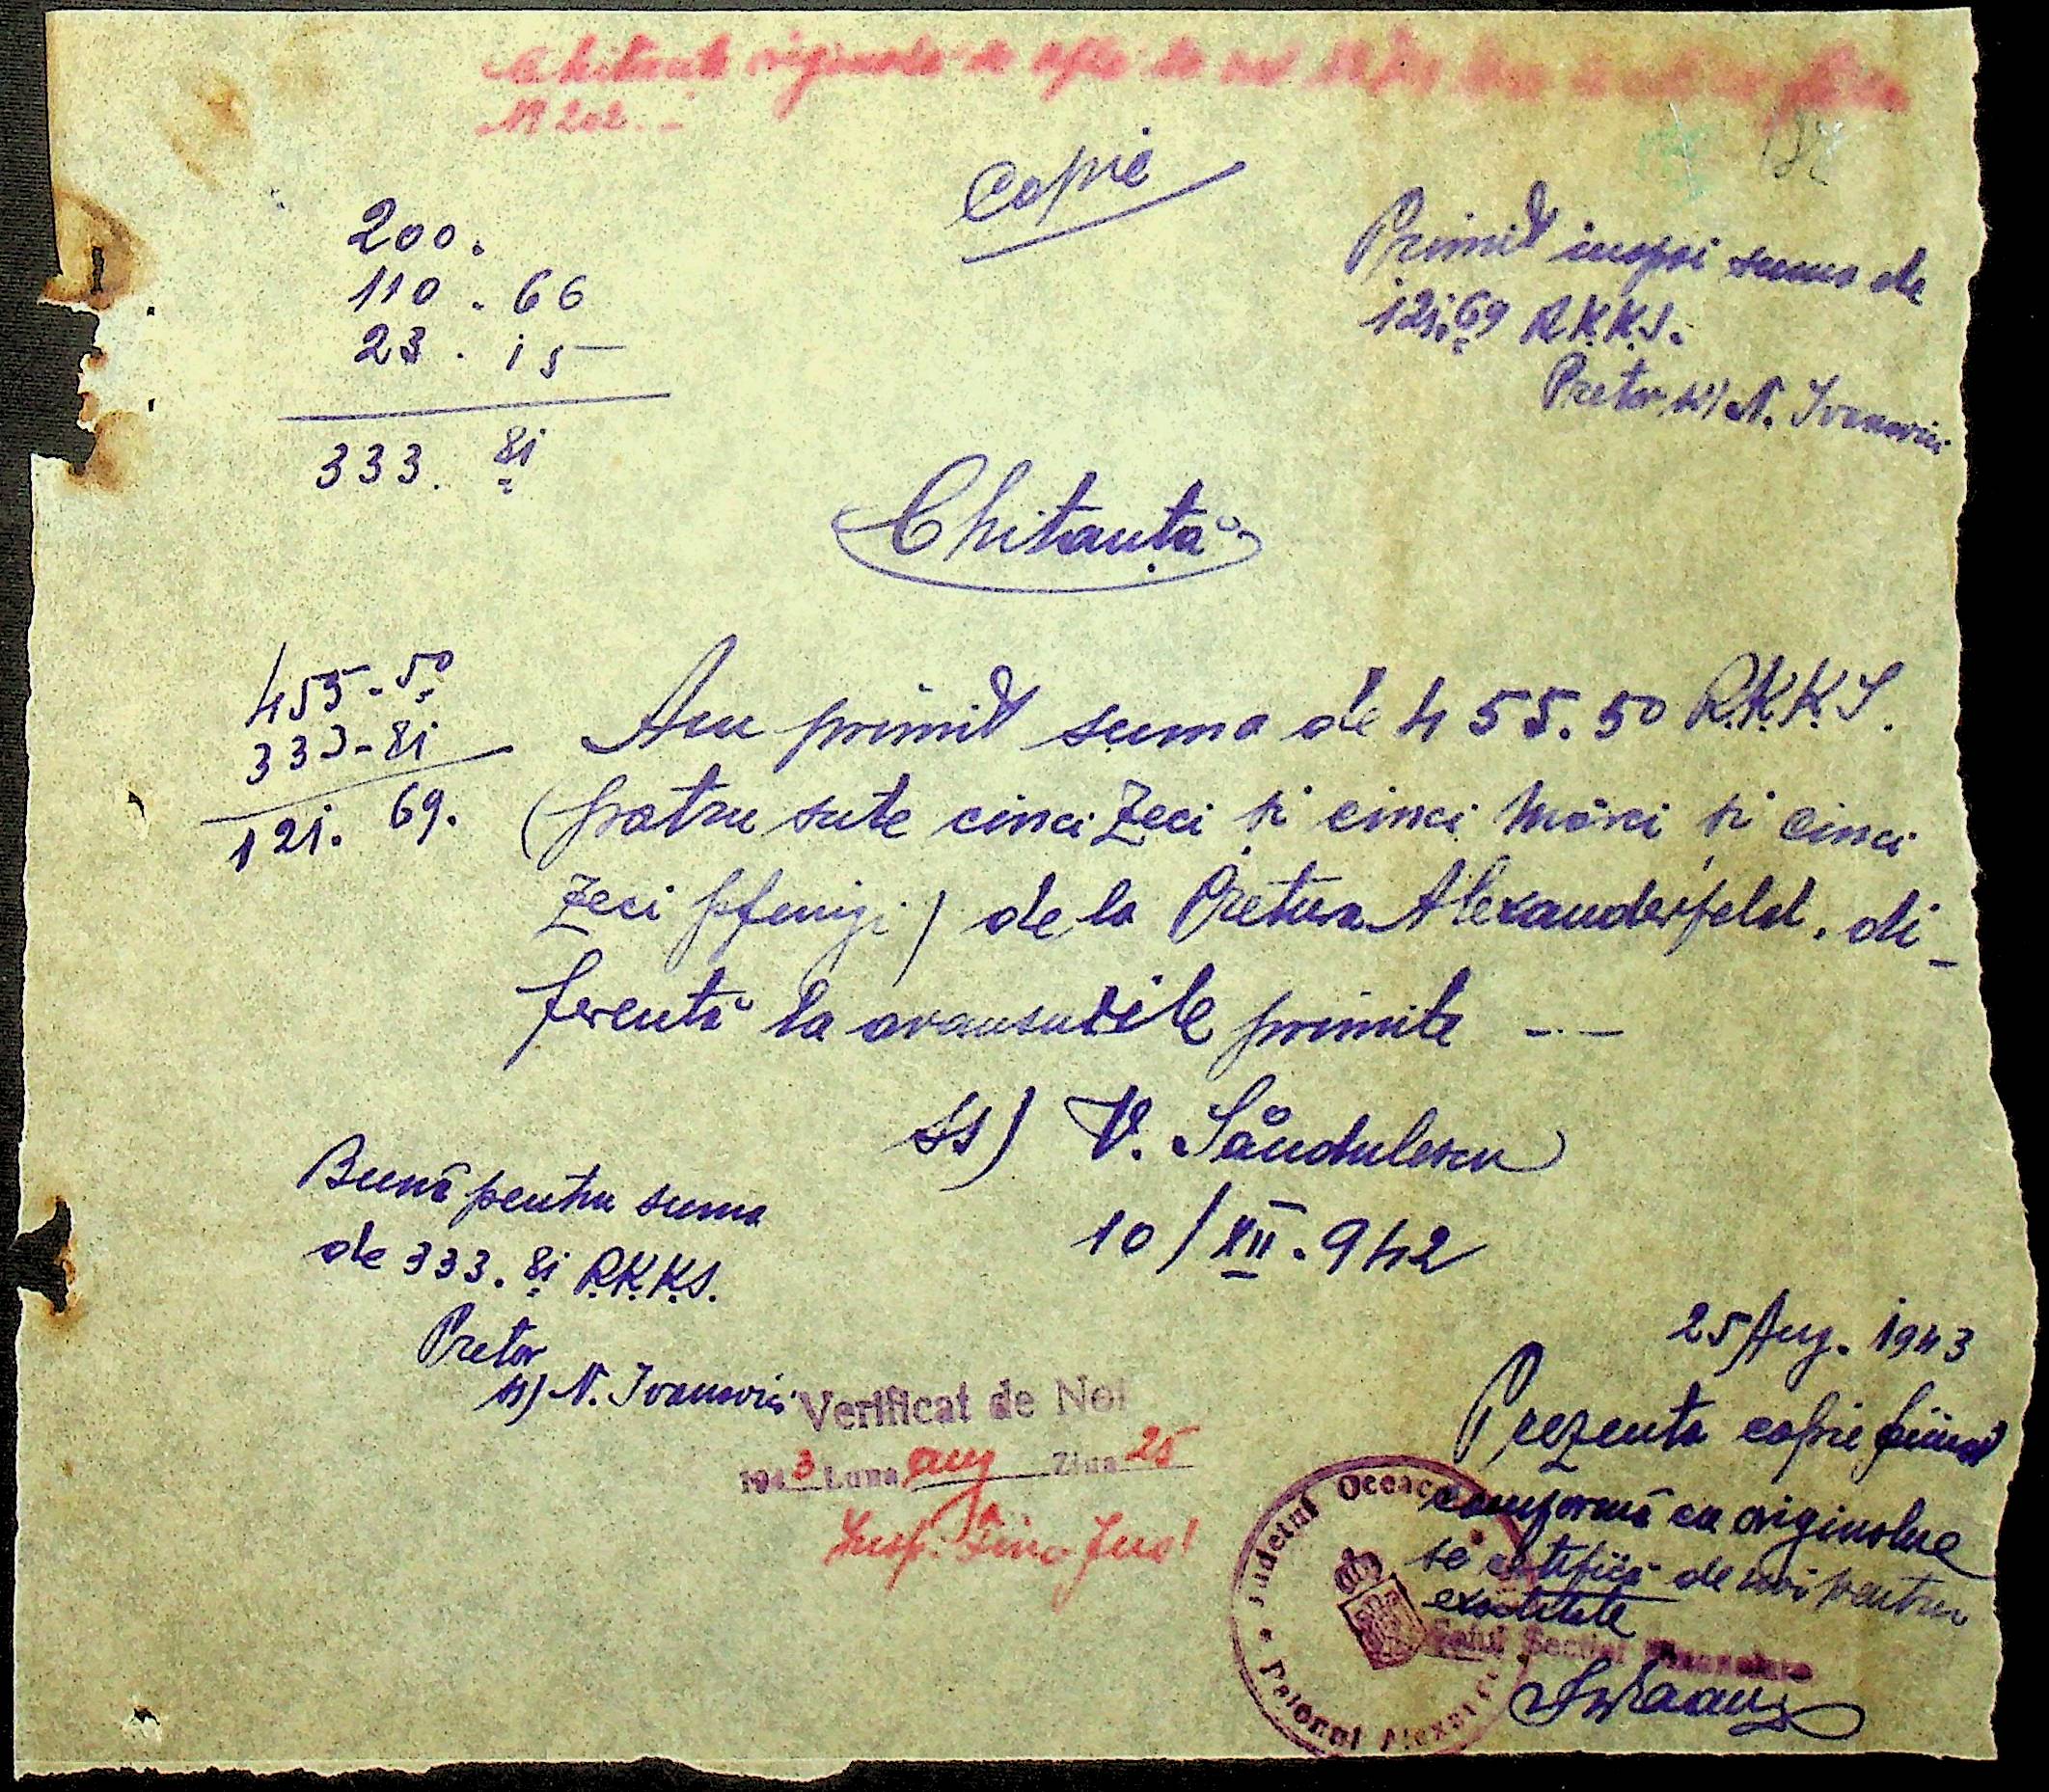 Chitanța originala se afla la
No 202. -
Copie
200.
110. 66
23. 15
333. 81
Primit inapoi suma de
121.69 R.K.K.S.
Pretor ss) N. Ivanovici
Chitanță
455-50
333-81
121. 69.
Am primit suma de 455.50 R.K.K.S.
(patru sute cinci zeci și cinci mărci și cinci
zeci pfenigi) de la Pretura Alexanderfeld. di-
ferență la avansurile primite -.-
ss) V. Săndulescu
10/XII.942
Bună pentru suma
de 333.81 R.K.K.S.
Pretor
ss) N. Ivanovici
Verificat de Noi
1943 Luna aug Ziua 25
Insp.
25 Aug. 1943
Prezenta copie fiind
conformă cu originalul
se certifică de noi pentru
exactitate
Șeful Secției Financiare
Județul Oceacov
Raionul